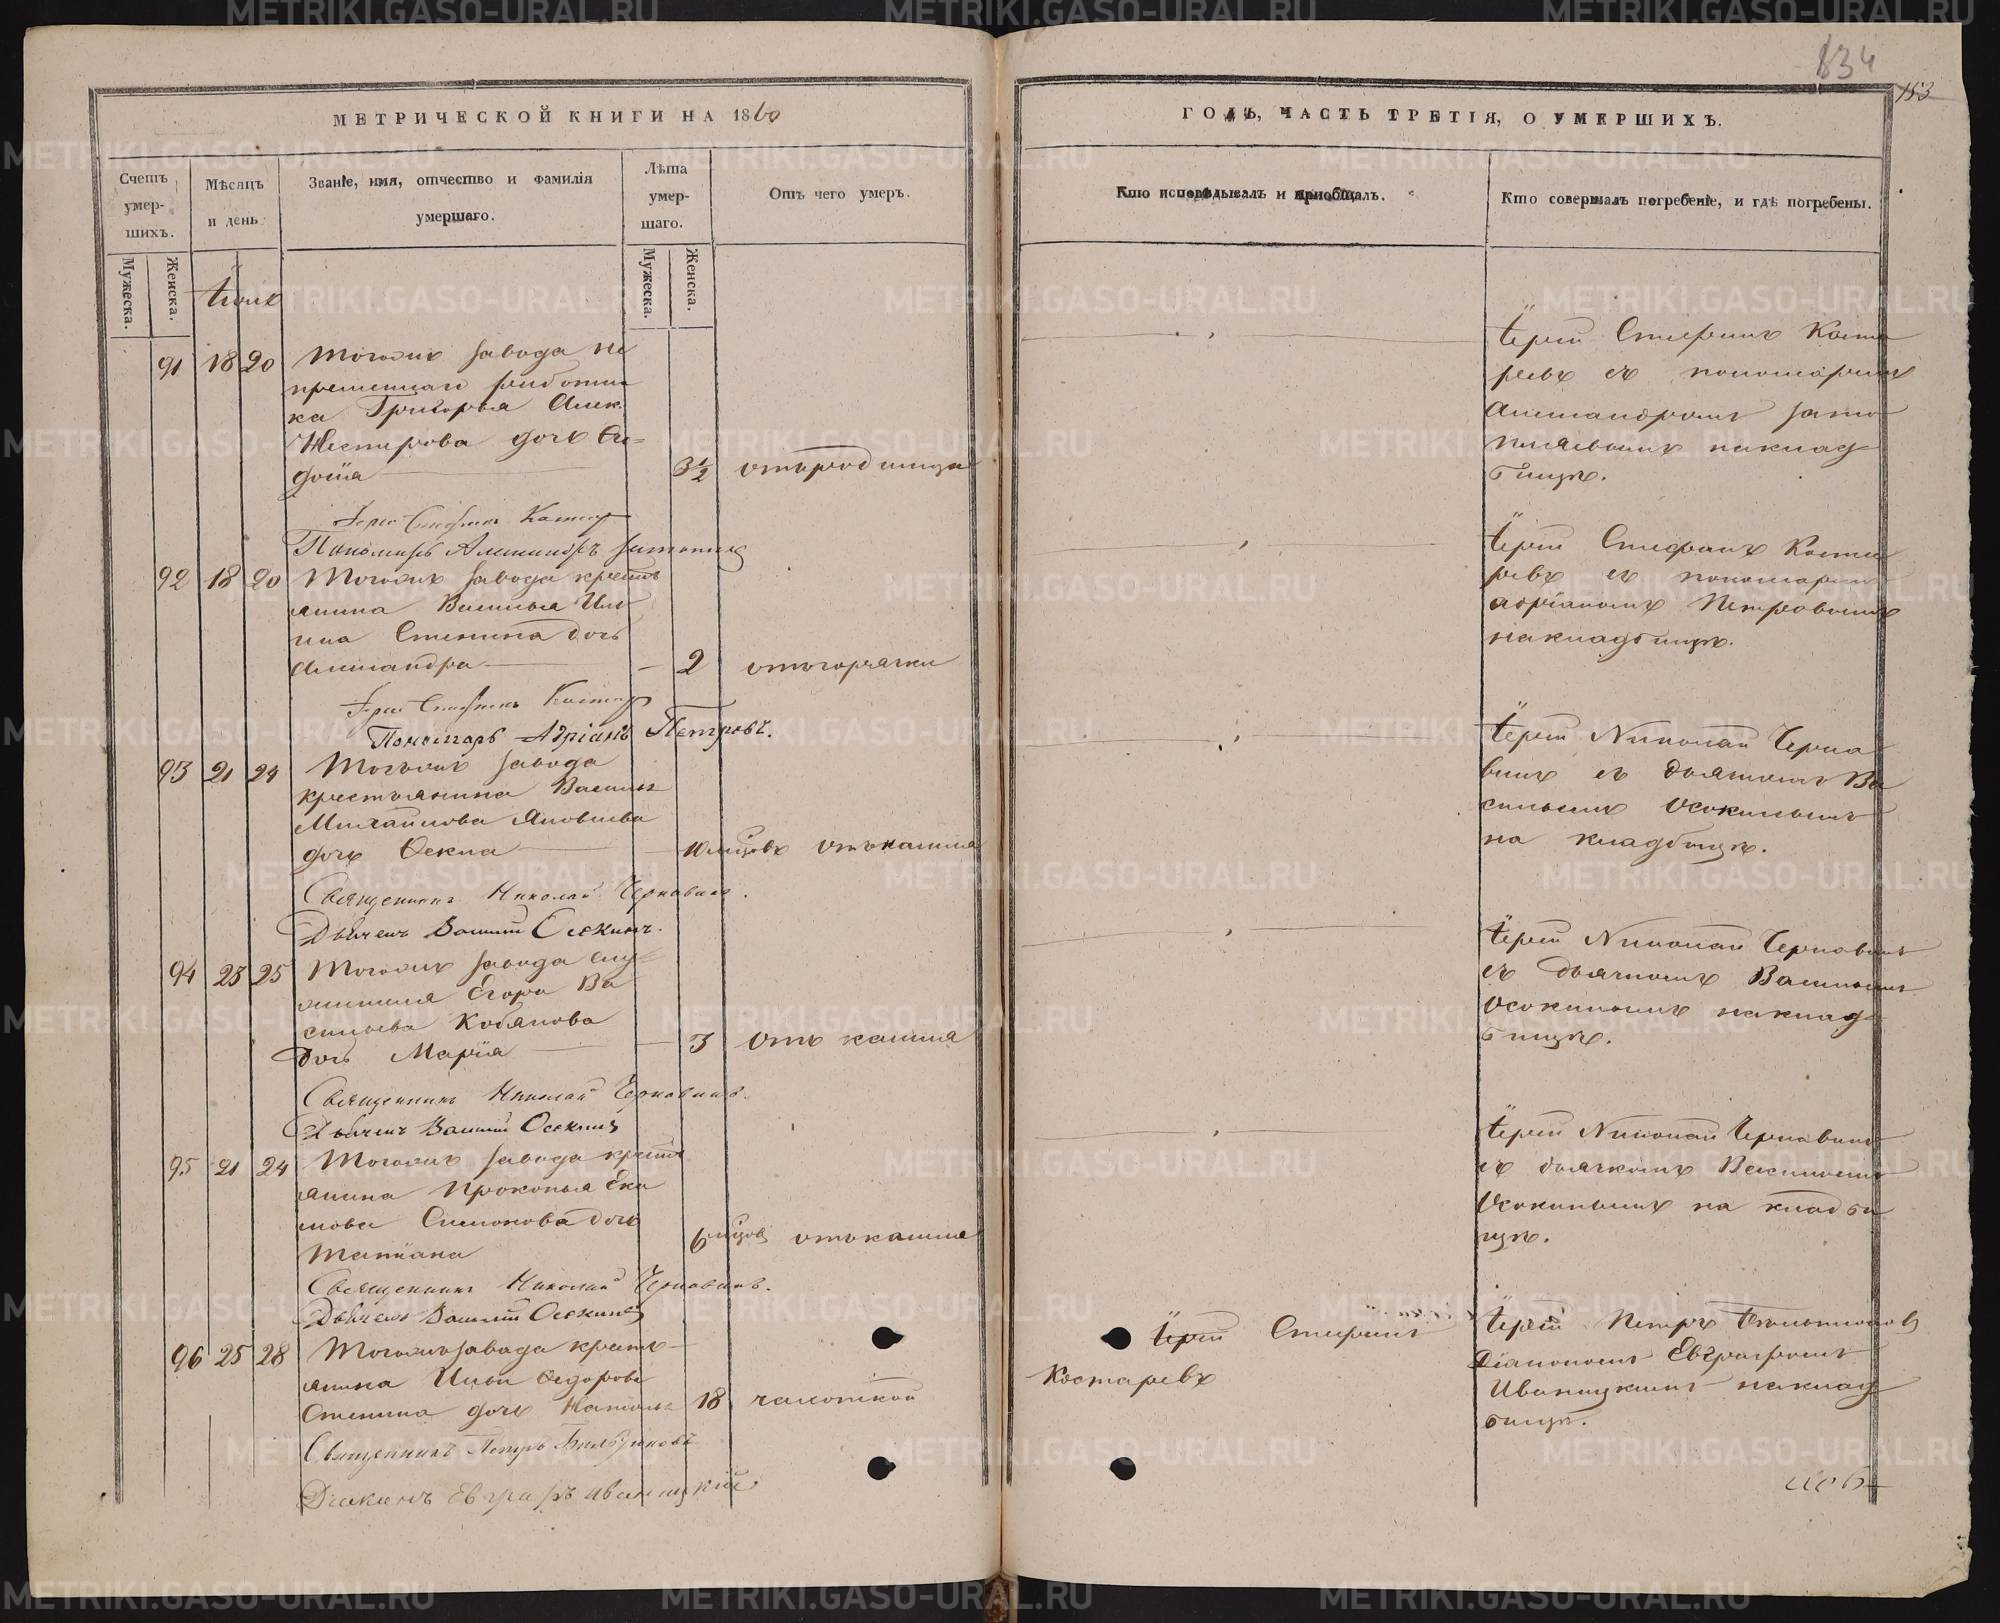 834
153
МЕТРИЧЕСКОЙ КНИГИ НА 1860
ГОДЪ, ЧАСТЬ ТРЕТІЯ, О УМЕРШИХЪ.
Счетъ умер-шихъ.
Мѣсяцъ и день
Званіе, имя, отчество и фамилія умершаго.
Лѣта умер-шаго.
Отъ чего умеръ.
Кто исповѣдывалъ и приобщалъ.
Кто совершалъ погребеніе, и гдѣ погребены.
Мужеска.
Женска.
Мужеска.
Женска.
91 18 20 Тогожъ завода не
премѣннаго работни
ка Григорья Алек.
Нестерова дочь Ев-
докія 3½ отъ родимца
Іерей Стефанъ Коста
ревъ съ пономаремъ
Александромъ
на клад
бищѣ.
Іерей Стефанъ Костар
Пономарь Александръ
92 18 20 Тогожъ завода крестъ
янина Василья Иль
ина Стенина дочь
Александра 2 отъ горячки
Іерей Стефанъ Коста
ревъ съ пономаремъ
Адріаномъ Петровымъ
на кладбищѣ.
Іерей Стефанъ Костар
Пономарь Адріанъ Петровъ.
93 21 24 Тогожъ завода
крестьянина Василья
Михайлова Яковлева
дочь Фекла 10 мѣсцовъ отъ кашля
Іерей Николай Черна
винъ съ дьячкомъ Ва
сильемъ Осокинымъ
на кладбищѣ.
Священникъ Николай Чернавинъ.
Дьячекъ Василій Осокинъ.
94 23 25 Тогожъ завода слу
жителя Егора Ва
сильева Кобякова
дочь Марія 3 отъ кашля
Іерей Николай Чернавинъ
съ дьячкомъ Васильемъ
Осокинымъ на клад
бищѣ.
Священникъ Николай Чернавинъ.
Дьячекъ Василій Осокинъ
95 21 24 Тогожъ завода крестъ
янина Прокопья Еки
мова Симонова дочь
Татіана 6 мѣсцовъ отъ кашля
Іерей Николай Чернавинъ
съ дьячкомъ Васильемъ
Осокинымъ на кладби
щѣ.
Священникъ Николай Чернавинъ.
Дьячекъ Василій Осокинъ
96 25 28 Тогожъ завода кресть-
янина Ильи Федорова
Стенина дочь Наталья 18 чахоткой
Іерей Стефанъ
Костаревъ
Іерей Петръ
Діакономъ Евграфомъ
Иваницкимъ на клад
бищѣ.
Священникъ Петръ
Діаконъ Евграфъ Иваницкій
METRIKI.GASO-URAL.RU